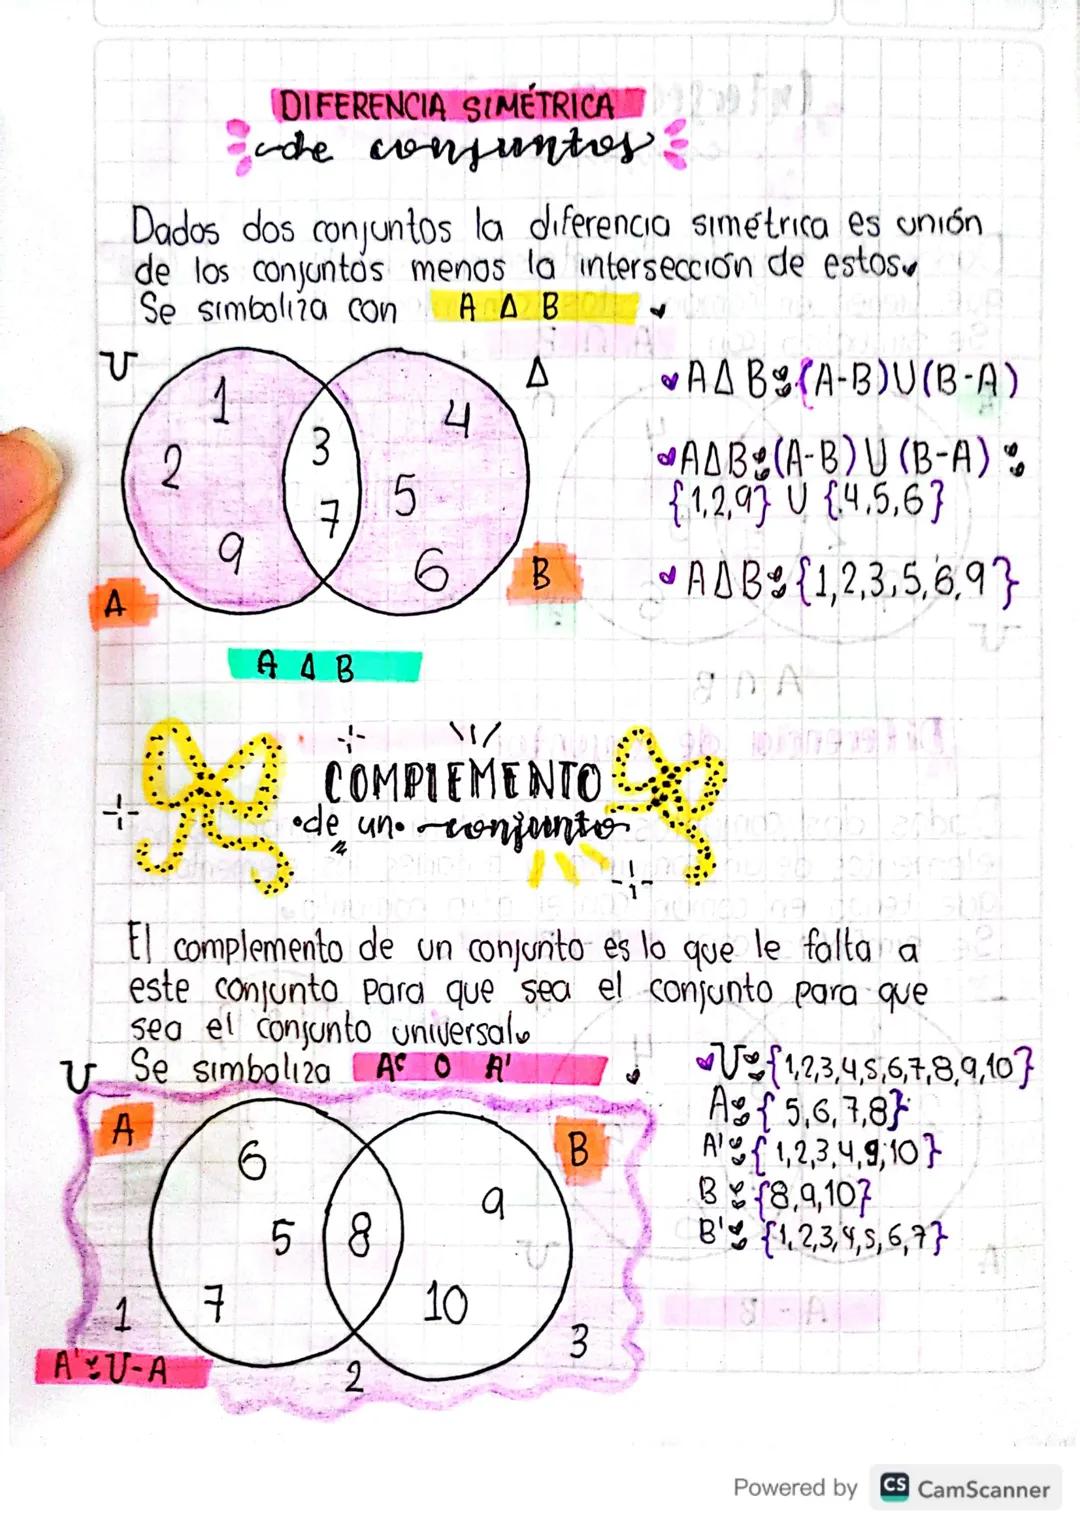 DIFERENCIA SIMÉTRICA
de conjuntos
Dados dos conjuntos la diferencia simétrica es unión
de los conjuntos menos la intersección de estos.
Se simboliza con A Δ B
U
Δ
1
2
9
3
7
4
5
6
A
B
A Δ B
A Δ B = (A-B) U (B-A)
A Δ B = (A-B) U (B-A) =
{1,2,9} U {4,5,6}
A Δ B = {1,2,3,5,6,9}
COMPLEMENTO
de un conjunto
El complemento de un conjunto es lo que le falta a
este conjunto para que sea el conjunto para que
sea el conjunto universal
Se simboliza Aᶜ O A'
U
A
B
6
5
7
8
9
10
1
2
3
A' = U-A
U = {1,2,3,4,5,6,7,8,9,10}
A = {5,6,7,8}
A' = {1,2,3,4,9,10}
B = {8,9,10}
B' = {1,2,3,4,5,6,7}
Powered by CS CamScanner